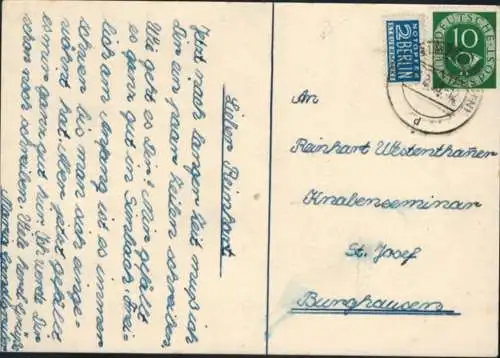 Lieber Reinhart
Jetzt nach langer Zeit muß ich
Dir ein paar Zeilen schreiben,
Wie geht es Dir? Mir gefällt
es ganz gut in Simbach. Frei-
lich am Anfang ist es immer
schwer bis man sich einge-
wöhnt hat. Aber jetzt gefällt
es mir ganz gut hier. Ich werde Dir
schon noch schreiben. Viele herzl. Grüße
NOTOPFER
2 BERLIN
STEUERMARKE
DEUTSCHE BUNDESPOST
10
An
Reinhart Westenthanner
Knabenseminar
St. Josef
Burghausen